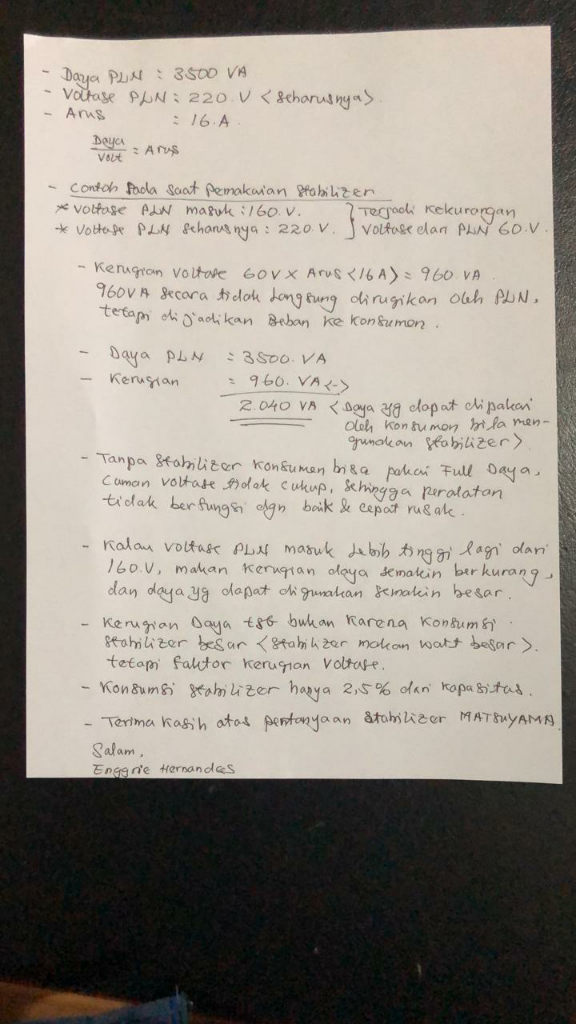 - Daya PLN : 3500 VA
- Voltase PLN : 220. V <seharusnya>.
- Arus : 16. A.
Daya/Volt = Arus
- Contoh Pada Saat Pemakaian Stabilizer
* Voltase PLN masuk : 160. V. } Terjadi Kekurangan
* Voltase PLN seharusnya : 220. V. } Voltase dari PLN 60. V.
- Kerugian Voltase 60V x Arus <16 A> = 960. VA.
960VA secara tidak langsung dirugikan oleh PLN,
tetapi dijadikan Beban Ke Konsumen.
- Daya PLN : 3500. VA
- Kerugian = 960. VA <->
2.040 VA < Daya yg dapat dipakai
oleh Konsumen bila men-
gunakan Stabilizer >
- Tanpa Stabilizer Konsumen bisa pakai Full Daya,
Cuman Voltase tidak cukup, Sehingga peralatan
tidak berfungsi dgn baik & cepat rusak.
- Kalau Voltase PLN masuk Lebih tinggi lagi dari
160.V, makan Kerugian daya semakin berkurang,
dan daya yg dapat digunakan semakin besar.
- Kerugian Daya tsb bukan Karena Konsumsi
Stabilizer besar <Stabilizer makan watt besar>.
tetapi faktor Kerugian Voltase.
- Konsumsi Stabilizer hanya 2,5% dari Kapasitas.
- Terima Kasih atas pertanyaan Stabilizer MATSUYAMA.
Salam,
Enggrie Hernandes